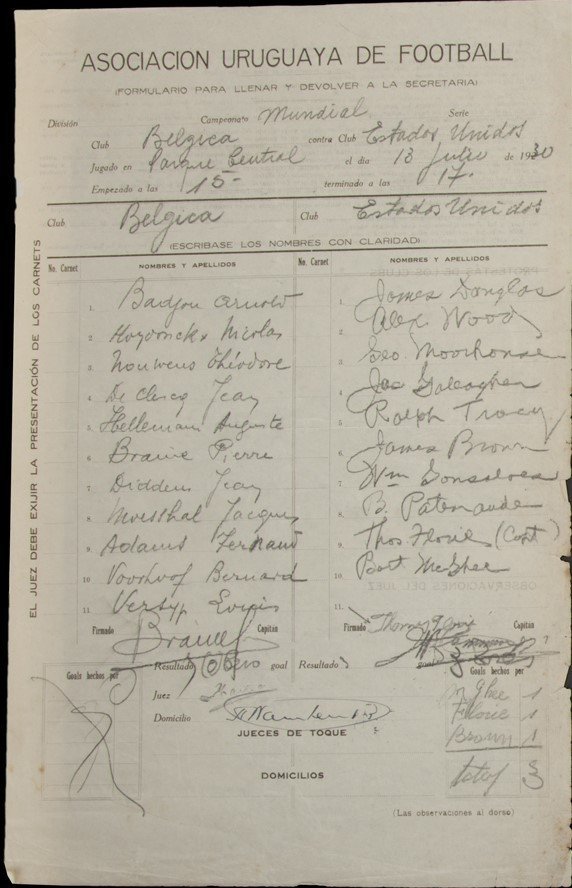 ASOCIACION URUGUAYA DE FOOTBALL
(FORMULARIO PARA LLENAR Y DEVOLVER A LA SECRETARIA)
División Campeonato Mundial Serie
Club Belgica contra Club Estados Unidos
Jugado en Parque Central el dia 13 Julio de 1930
Empezado a las 15- terminado a las 17.
Club Belgica Club Estados Unidos
(ESCRIBASE LOS NOMBRES CON CLARIDAD)
EL JUEZ DEBE EXIJIR LA PRESENTACIÓN DE LOS CARNETS
No. Carnet NOMBRES Y APELLIDOS No. Carnet NOMBRES Y APELLIDOS
1. Badjou Arnold 1. James Douglas
2. Nicolas 2. Alex Wood
3. Nouwens Théodore 3. Geo. Moorhouse
4. De Clercq Jean 4. Jas Galeagher
5. Hellemans Auguste 5. Ralph Tracey
6. Braine Pierre 6. James Brown
7. Diddens Jean 7. Wm Gonsalves
8. Moeschal Jacques 8. B. Patenaude
9. Adams Fernand 9. Thos. Florie (Capt)
10. Voorhoof Bernard 10. Bart McGhee
11. Versyp 11.
Firmado Braine Capitán Firmado Thomas Florie Capitán
Resultado 0 goal Resultado 3 goal
Goals hechos por Goals hechos por
Juez
Domicilio
JUECES DE TOQUE
DOMICILIOS
McGhee 1
Florie 1
Brown 1
total 3
(Las observaciones al dorso)